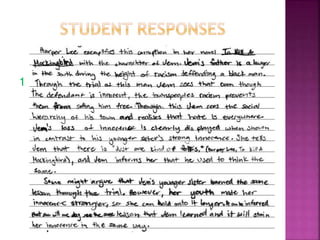 STUDENT RESPONSES
1
Harper Lee exemplifies this corruption in her novel To Kill A
Mockingbird with the character of Jem. Jem's father is a lawyer
in the south during the height of racism deffending a black man.
Through the trial as this man Jem sees that even though
the defendant is innocent, the townspeoples racism prevents
them from setting him free. Through this Jem sees the social
hypocrisy of his town and realises that hate is everywhere.
Jem's loss of innocence is clearly displayed when shown
in contrast to his younger sister's strong innocence. She tells
Jem that there is "Just one kind of folks," (Harper Lee, To Kill A
Mockingbird), and Jem informs her that he used to think the
same.
Some might argue that Jem's younger sister learned the same
lesson through the trial. However, her youth made her
innocence stronger, so she can hold onto it longer
lesson that Jem learned and it will stain
her innocence in the same way.